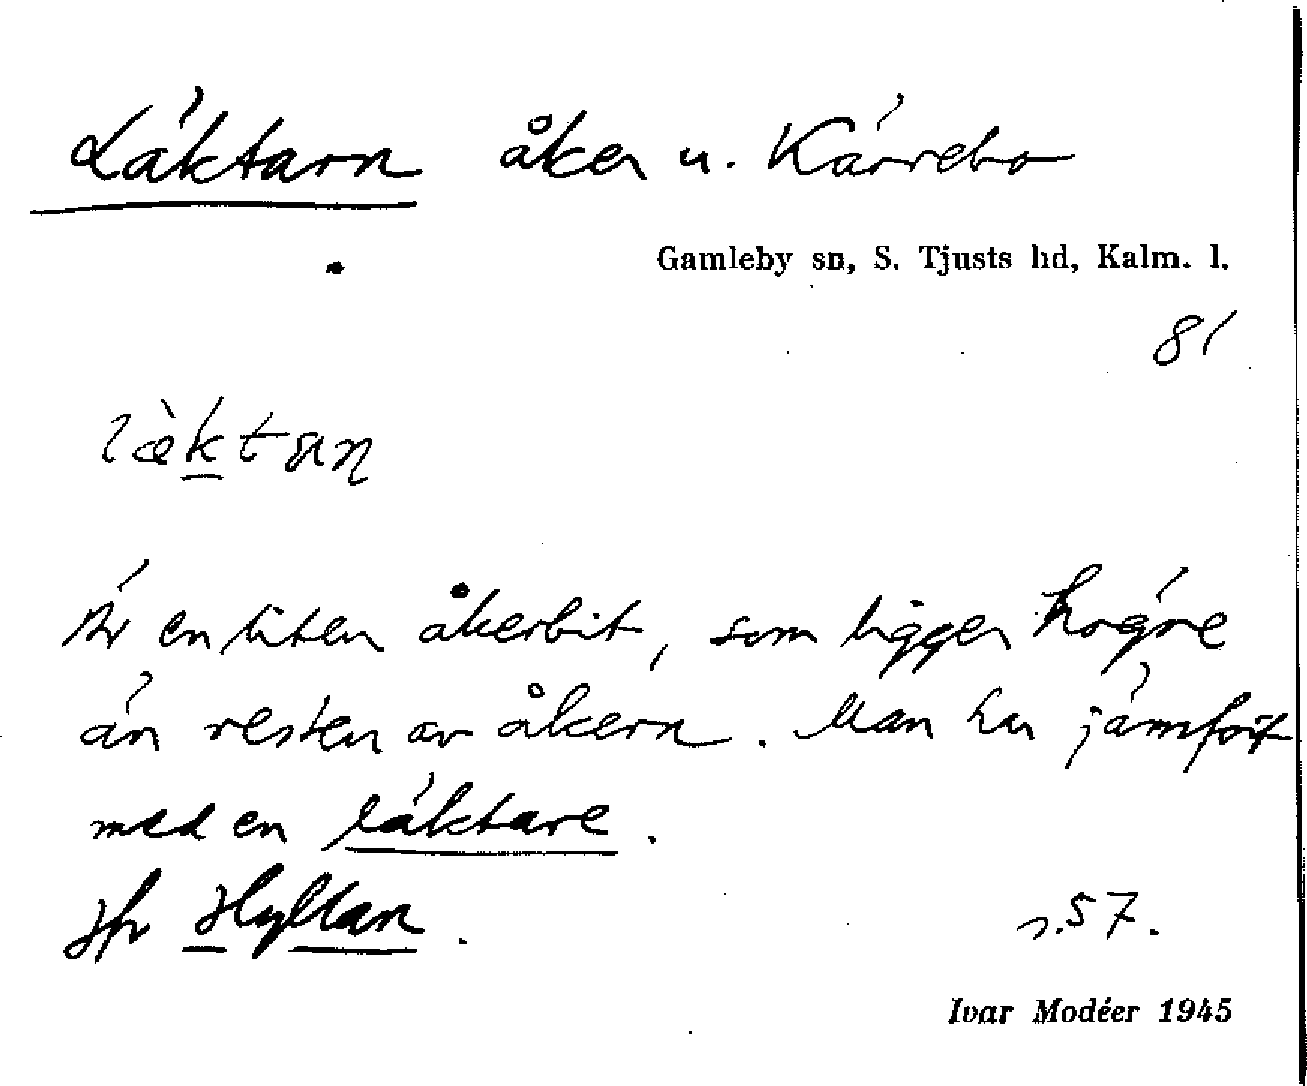 Läktarn åker u. Kärrebo
Gamleby sn, S. Tjusts hd, Kalm. l.
81
Är en liten åkerbit, som ligger högre
än resten av åkern. Man har jämfört
med en läktare.
Jfr Hyltan.
s. 57.
Ivar Modéer 1945